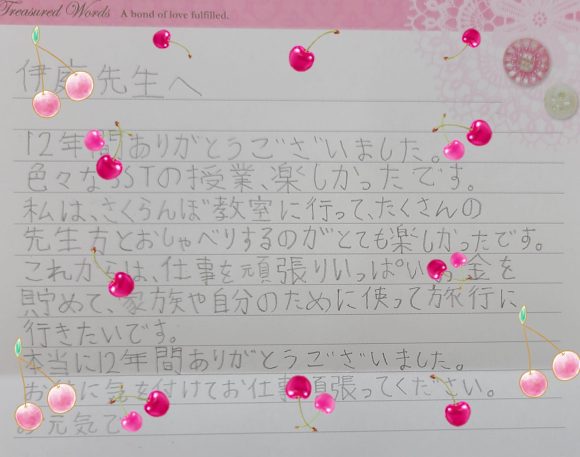 Treasured Words A bond of love fulfilled.
伊 先生へ
12年間ありがとうございました。
色々なSSTの授業、楽しかったです。
私は、さくらんぼ教室に行って、たくさんの
先生方とおしゃべりするのがとても楽しかったです。
これからは、仕事を頑張りいっぱいお金を
貯めて、家族や自分のために使って旅行に
行きたいです。
本当に12年間ありがとうございました。
に気を付けてお仕事頑張ってください。
お元気で